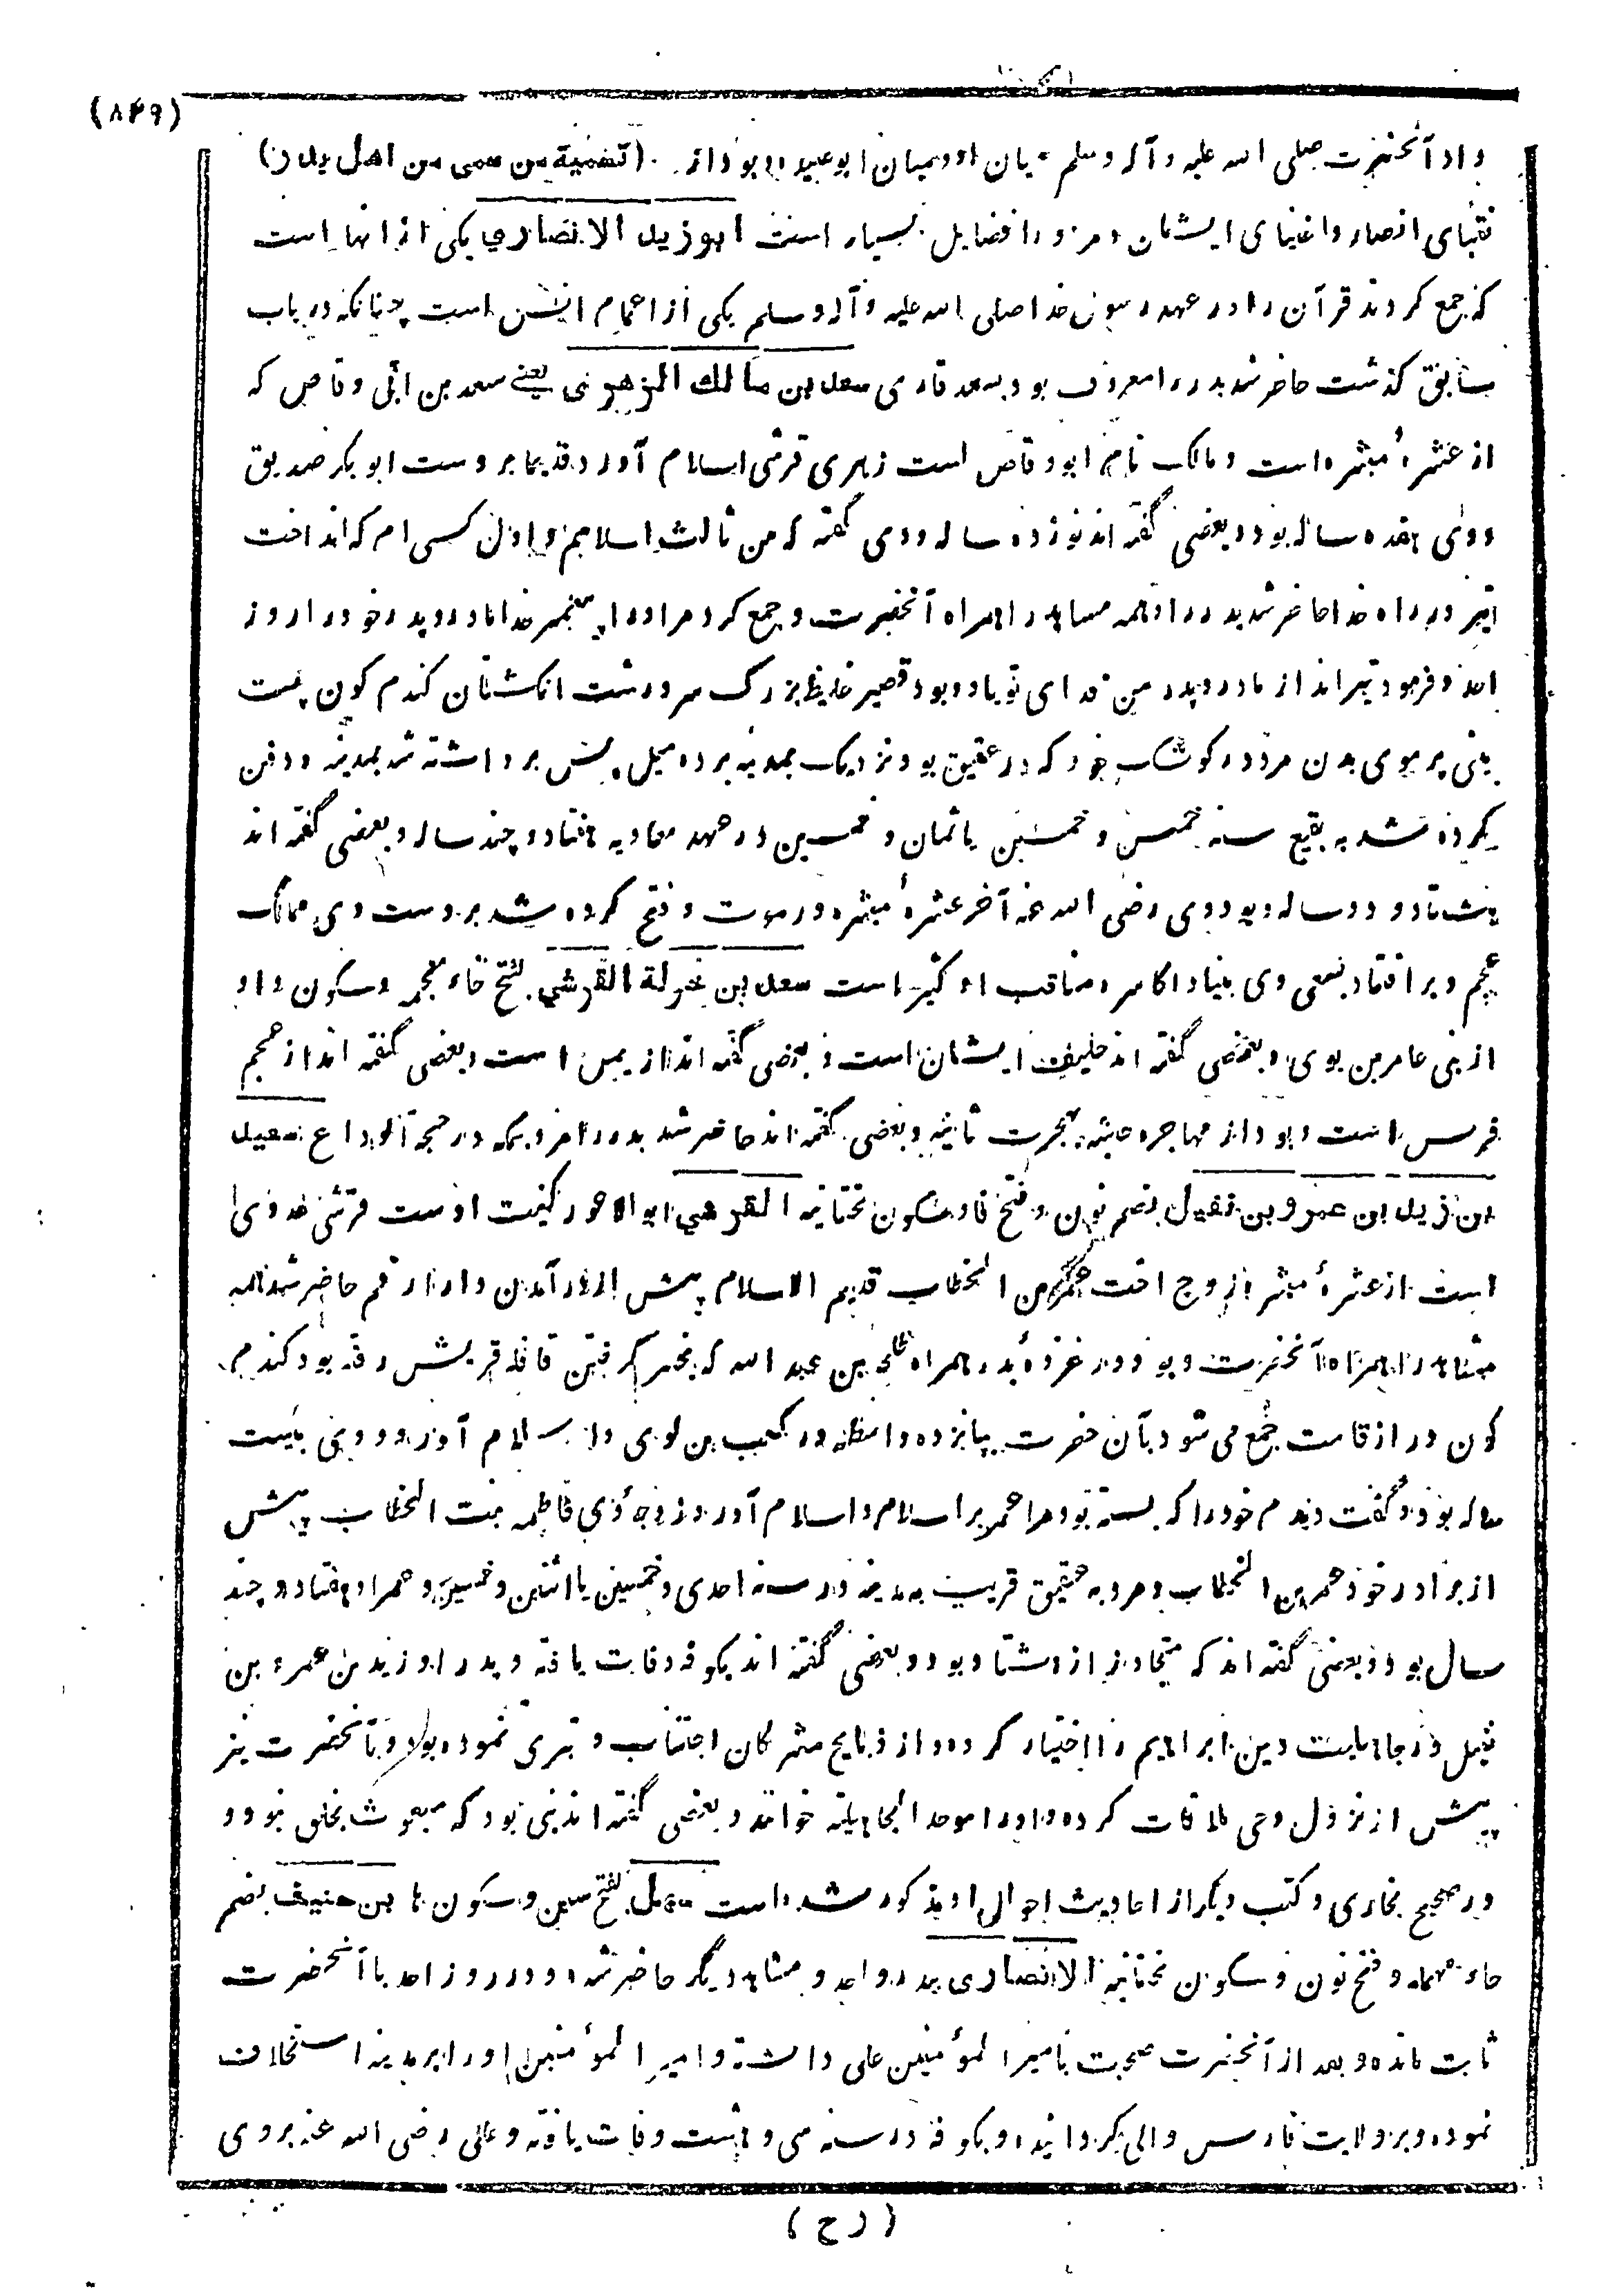 (۸۴۹)
داد آنحضرت صلی الله علیه و آله وسلم میان او و میان ابو عبیده و بود از (تسمیة من سمی من اهل بدر)
نقبای انصار و اغنیای ایشان و مر و را فضایل بسیار است ابو زید الانصاری یکی از انها است
که جمع کردند قرآن را در عهد رسول خدا صلی الله علیه و آله و سلم یکی از اعمام انس است چنانکه در باب
سابق گذشت حاضر شد بدر را معروف بود بسعد قاری سعد بن مالك الزهری یعنی سعد بن ابی وقاص که
از عشرهٔ مبشره است و مالک نام ابو وقاص است زهری قرشی اسلام آورد قدیما بر دست ابو بکر صدیق
و وی هفده ساله بود و بعضی گفته اند نوزده ساله و وی گفته که من ثالث اسلامیم و اول کسی ام که انداخت
تیر در راه خدا حاضر شد بدر را و همه مشاهد را همراه آنحضرت و جمع کرد مر او را پیغمبر خدا مادر و پدر خود را روز
احد و فرمود تیر انداز مادر و پدر من فدای تو باد و بود قصیر غلیظ بزرگ سر درشت انگشتان گندم گون پست
بینی پر موی بدن مرد در کوشک خود که در عقیق بود نزدیک بمدینه بر ده میل پس برداشته شد بمدینه و دفن
کرده شد به بقیع سنه خمس و خمسین یا ثمان و خمسین در عهد معاویه هفتاد و چند ساله و بعضی گفته اند
هشتاد و دو ساله و بود وی رضی الله عنه آخر عشرهٔ مبشره در موت و فتح کرده شد بر دست وی ممالک
عجم و بر افتاد بسعی وی بنیاد اکاسره و مناقب او کثیر است سعد بن خولة القرشی بفتح خاء معجمه و سکون واو
از بنی عامر بن لوی و بعضی گفته اند حلیف ایشان است و بعضی گفته اند از یمن است و بعضی گفته اند از عجم
فرس است و بود از مهاجره حبشه بهجرت ثانیه و بعضی گفته اند حاضر شد بدر را مرد بمکه در حجة الوداع سعید
بن زید بن عمرو بن نفیل بضم نون و فتح فا و سکون تحتانیه القرشی ابو الاعور کنیت اوست قرشی عدوی
است از عشرهٔ مبشره زوج اخت عمر بن الخطاب قدیم الاسلام پیش از در آمدن دار ارقم حاضر شد همه
مشاهد را همراه آنحضرت و بود در غزوهٔ بدر همراه طلحه بن عبد الله که بخبر گرفتن قافله قریش رفته بود گندم
گون دراز قامت جمع می شود بآن حضرت بپانزده واسطه در کعب بن لوی و اسلام آورد و وی بیست
ساله بود و گفت دیدم خود را که بسته بود مرا عمر بر اسلام و اسلام آورد زوجهٔ وی فاطمه بنت الخطاب پیش
از برادر خود عمر بن الخطاب و مرد به عقیق قریب به مدینه در سنه احدی و خمسین یا اثنین و خمسین و عمر او هفتاد و چند
سال بود و بعضی گفته اند که متجاوز از هشتاد بود و بعضی گفته اند بکوفه وفات یافته و پدر او زید بن عمرو بن
نفیل در جاهلیت دین ابراهیم را اختیار کرده و از ذبایح مشرکان اجتناب و تبری نموده بود و با آنحضرت نیز
پیش از نزول وحی ملاقات کرده و او را موحد الجاهلیة خوانند و بعضی گفته اند نبی بود که مبعوث بخلق نبود و
در صحیح بخاری و کتب دیگر از احادیث احوال او مذکور شده است سهل بفتح سین و سکون ها بن حنیف بضم
حاء مهمله و فتح نون و سکون تحتانیه الانصاری بدر و احد و مشاهد دیگر حاضر شده و در روز احد با آنحضرت
ثابت مانده و بعد از آنحضرت صحبت با امیر المؤمنین علی داشته و امیر المؤمنین او را بر مدینه استخلاف
نموده و بر ولایت فارس والی گردانیده و بکوفه در سنه سی و هشت وفات یافته و علی رضی الله عنه بر وی
(رح)